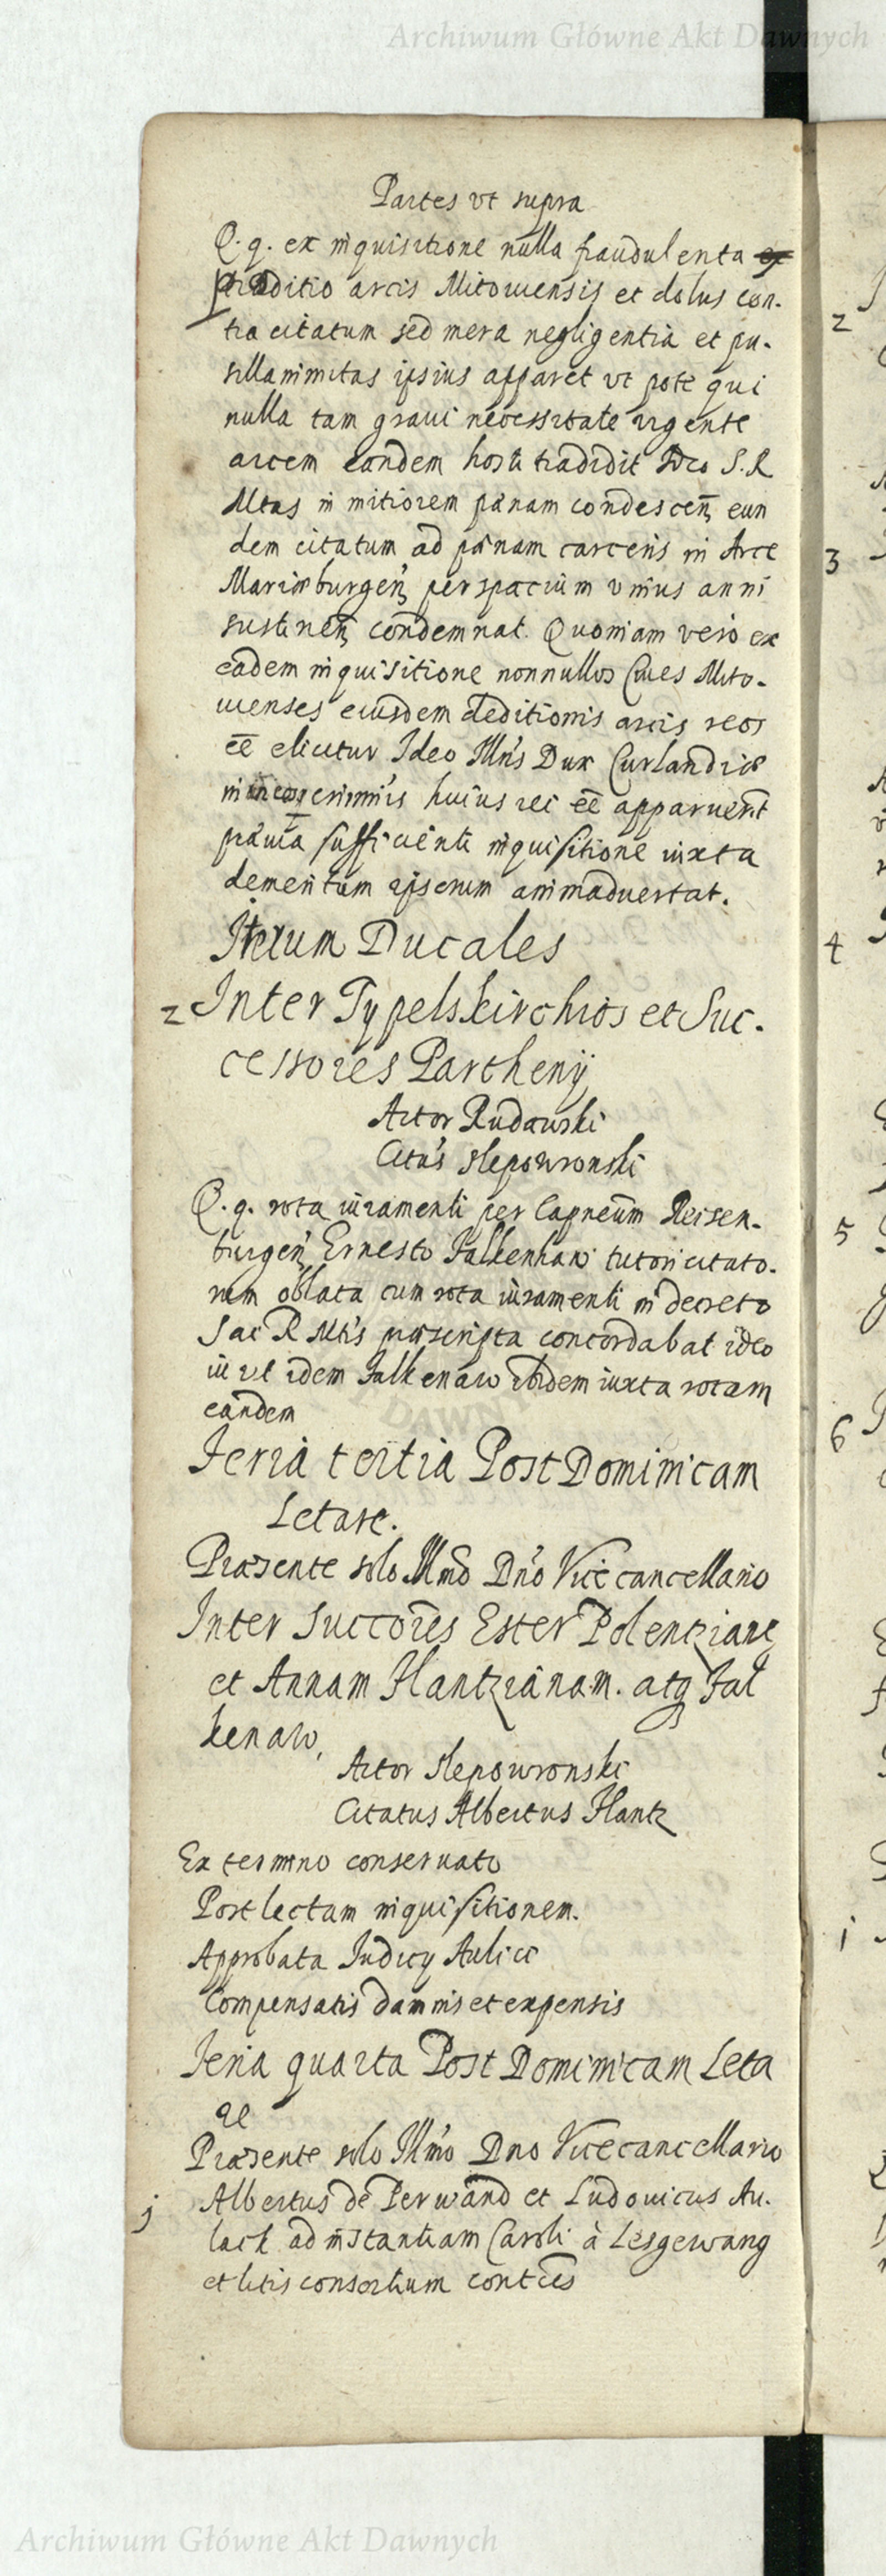 Archiwum Główne Akt Dawnych
Partes vt supra
Q. q. ex inquisitione nulla fraudulenta
proditio arcis Mitouiensis et dolus con-
tra citatum sed mera negligentia et pu-
sillanimitas ipsius apparet vt pote qui
nulla tam graui necessitate vrgente
arcem eandem hosti tradidit Ideo S. R
Mtas in mitiorem pænam condescen̄, eun
dem citatum ad pænam carceris in Arce
Marieburgen̄, per spacium vnius anni
sustinen̄, condemnat. Quoniam vero ex
eadem inquisitione nonnullos Ciues Mito-
uienses eiusdem deditionis arcis reos
eē elicitur Ideo Illr̃is Dux Curlandiæ
in criminis huius rei eē apparuerit
præuia sufficienti inquisitione iuxta
demeritum ipsorum animaduertat.
Iterum Ducales
2 Inter Typelskirchios et Suc-
cessores Parthenij
Actor Rudawski
Citatus Slepowronski
Q. q. rota iuramenti per Capneum Reisen-
burgen̄, Ernesto Falkenhaw tutori citato-
rum oblata cum rota iuramenti in decreto
Sac R Mtis præscripta concordabat ideo
iu vt idem Falkenaw ibidem iuxta rotam
eandem
Feria tertia Post Dominicam
Letare.
Præsente solo Illmo Dno Vicecancellario
Inter Succores Ester Polentziane
et Annam Hantzianam. atq Fal
kenaw,
Actor Slepowronski
Citatus Albertus Hantz
Ex termino conseruato
Post lectam inquisitionem.
Approbata Iudicij Aulici
Compensatis damnis et expensis
Feria quarta Post Dominicam Leta
re
Præsente solo Illmo Dno Vicecancellario
j Albertus de Perwand et Ludouicus Au-
lack ad instantiam Caroli à Lesgewang
et litis consortium contces
2
3
4
5
6
1
Archiwum Główne Akt Dawnych